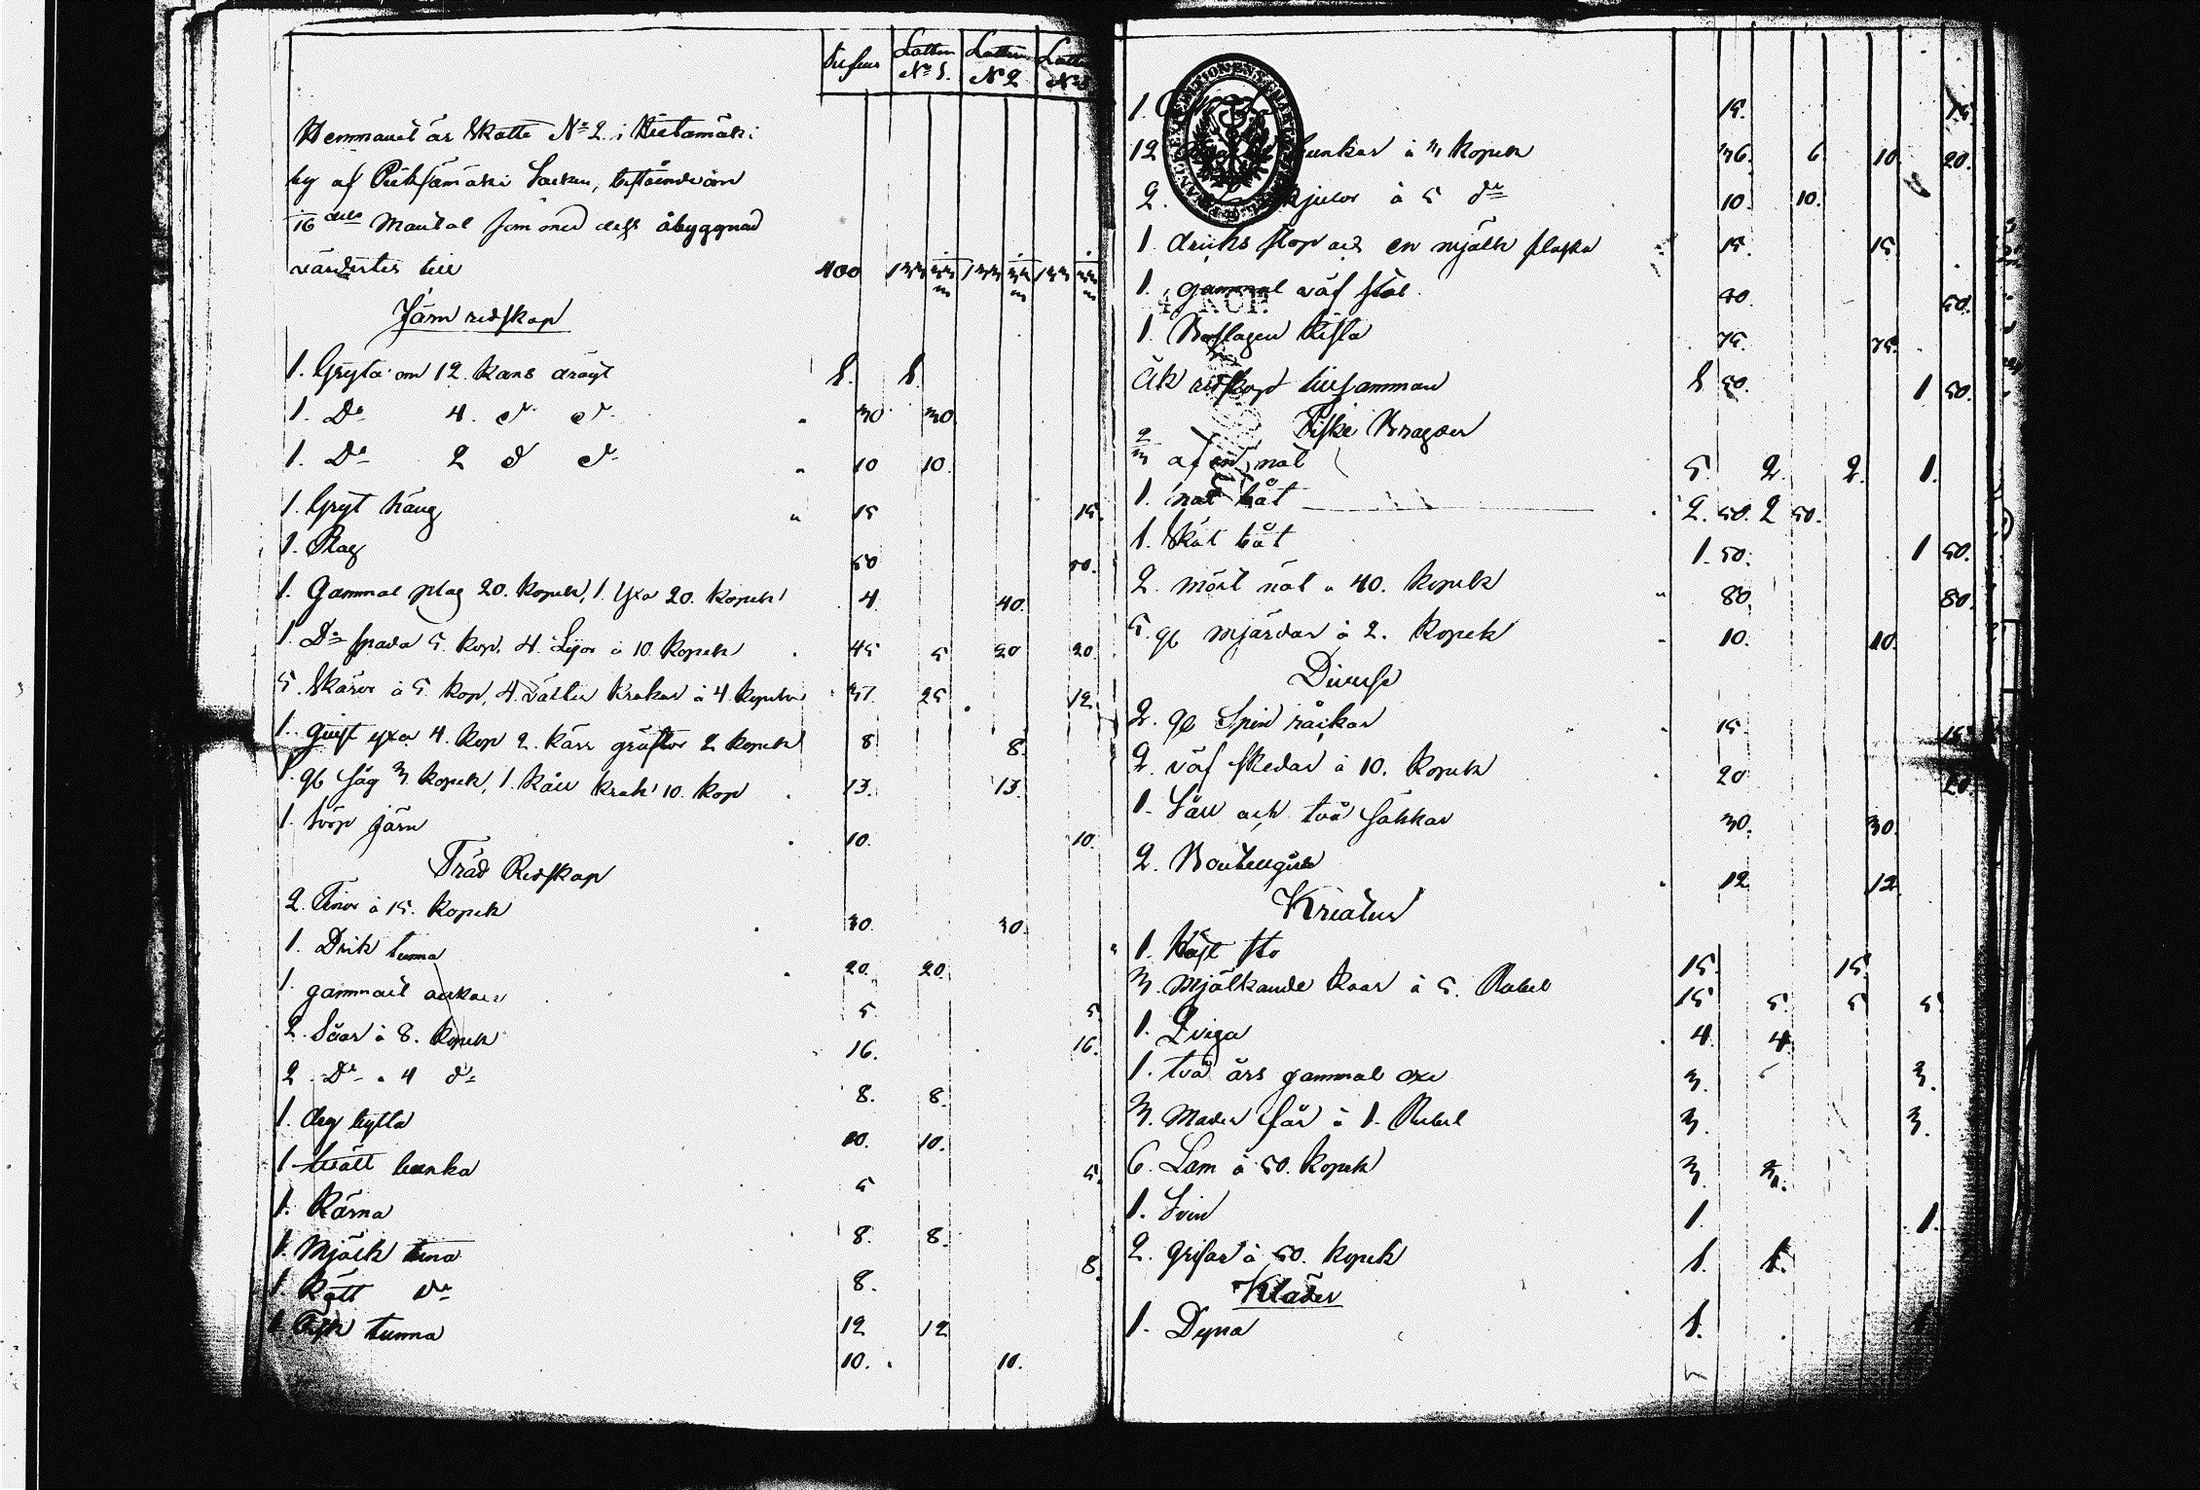 Summa Lotten Lotten Lotten
N=o 1. N=o 2 N=o 3
Hemmanet är Skatte N=o 2 i Hietamäki
by af Pieksämäki Socken, bestående än
/16 dels Mantal som med dess åbyggnad
värderter till 400 133 1/3 133 1/3 133 1/3
Järn redskap
1. Gryta om 12. Kans drägt 1. 1.
1. Do 4. do do 30 30
1. Do 2 do do 10 10.
1. Gryt häng 15 15.
1. Plog 50 50.
1. Gammal plog 20. Kopek, 1. Yxa 20. Kopek 4 40.
1. Do spada 5. Kop, 4. Lijor à 10 Kopek 45 5 20 20
5. Skäror à 5 Kop, 4. Krokar à 4 Kopek 37. 25 12
1. yxa 4. Kop 2. Kärr gräftor 2 Kopek 8 8.
1. gl såg 3 Kopek, 1. Krok 10. Kop 13. 13.
1. järn 10. 10.
Träd Redskap
2. Tinor à 15. Kopek 30. 30.
1. Drik tunna 20. 20.
1. gammalt ankare 5 5.
2. Såar à 8. Kopek 16. 16.
2 Do à 4 do 8. 8.
1. deg bytta 10. 10.
1 bunka 5 5.
1. Kärna 8. 8.
1. Mjölk tina 8. 8.
1. Kött Do 12 12
1. Fisk tunna 10. 10.
1. 15. 15
12 bunkar à 3 Kopek 36. 6 10 20.
2. à 5 do 10. 10.
1. dricks stop och en mjölk flaska 15. 15.
1. gammal väf stol 50. 50.
4 KOP.
1. Beslagen Kista 75. 75.
Åk redskap tillsamman 1 50. 1 50.
Fiske Bragder
2/3 af en not 5 2. 2. 1.
1. not båt 2. 50. 2 50.
1. Sköt båt 1. 50. 1 50.
2. mört nät à 40. Kopek 80. 80.
5. gl mjärdar à 2. Kopek 10. 10.
Diverse
2. gl Spin råckar 15. 15
2. väf skedar à 10. Kopek 20 20.
1. Såll och två säckar 30. 30.
2. Boutellger 12 12
Kreatur
1. Häst sto 15. 15.
3. Mjölkande Koor à 5. Rubel 15 5. 5 5
1. Qviga 4. 4.
1. två års gammal oxe 3. 3.
3. Moder får à 1. Rubel 3. 3.
6. Lam à 50. Kopek 3 3.
1. Svin 1. 1.
2. grisar à 50. Kopek 1. 1.
Kläder
1. Dyna 1. 1.